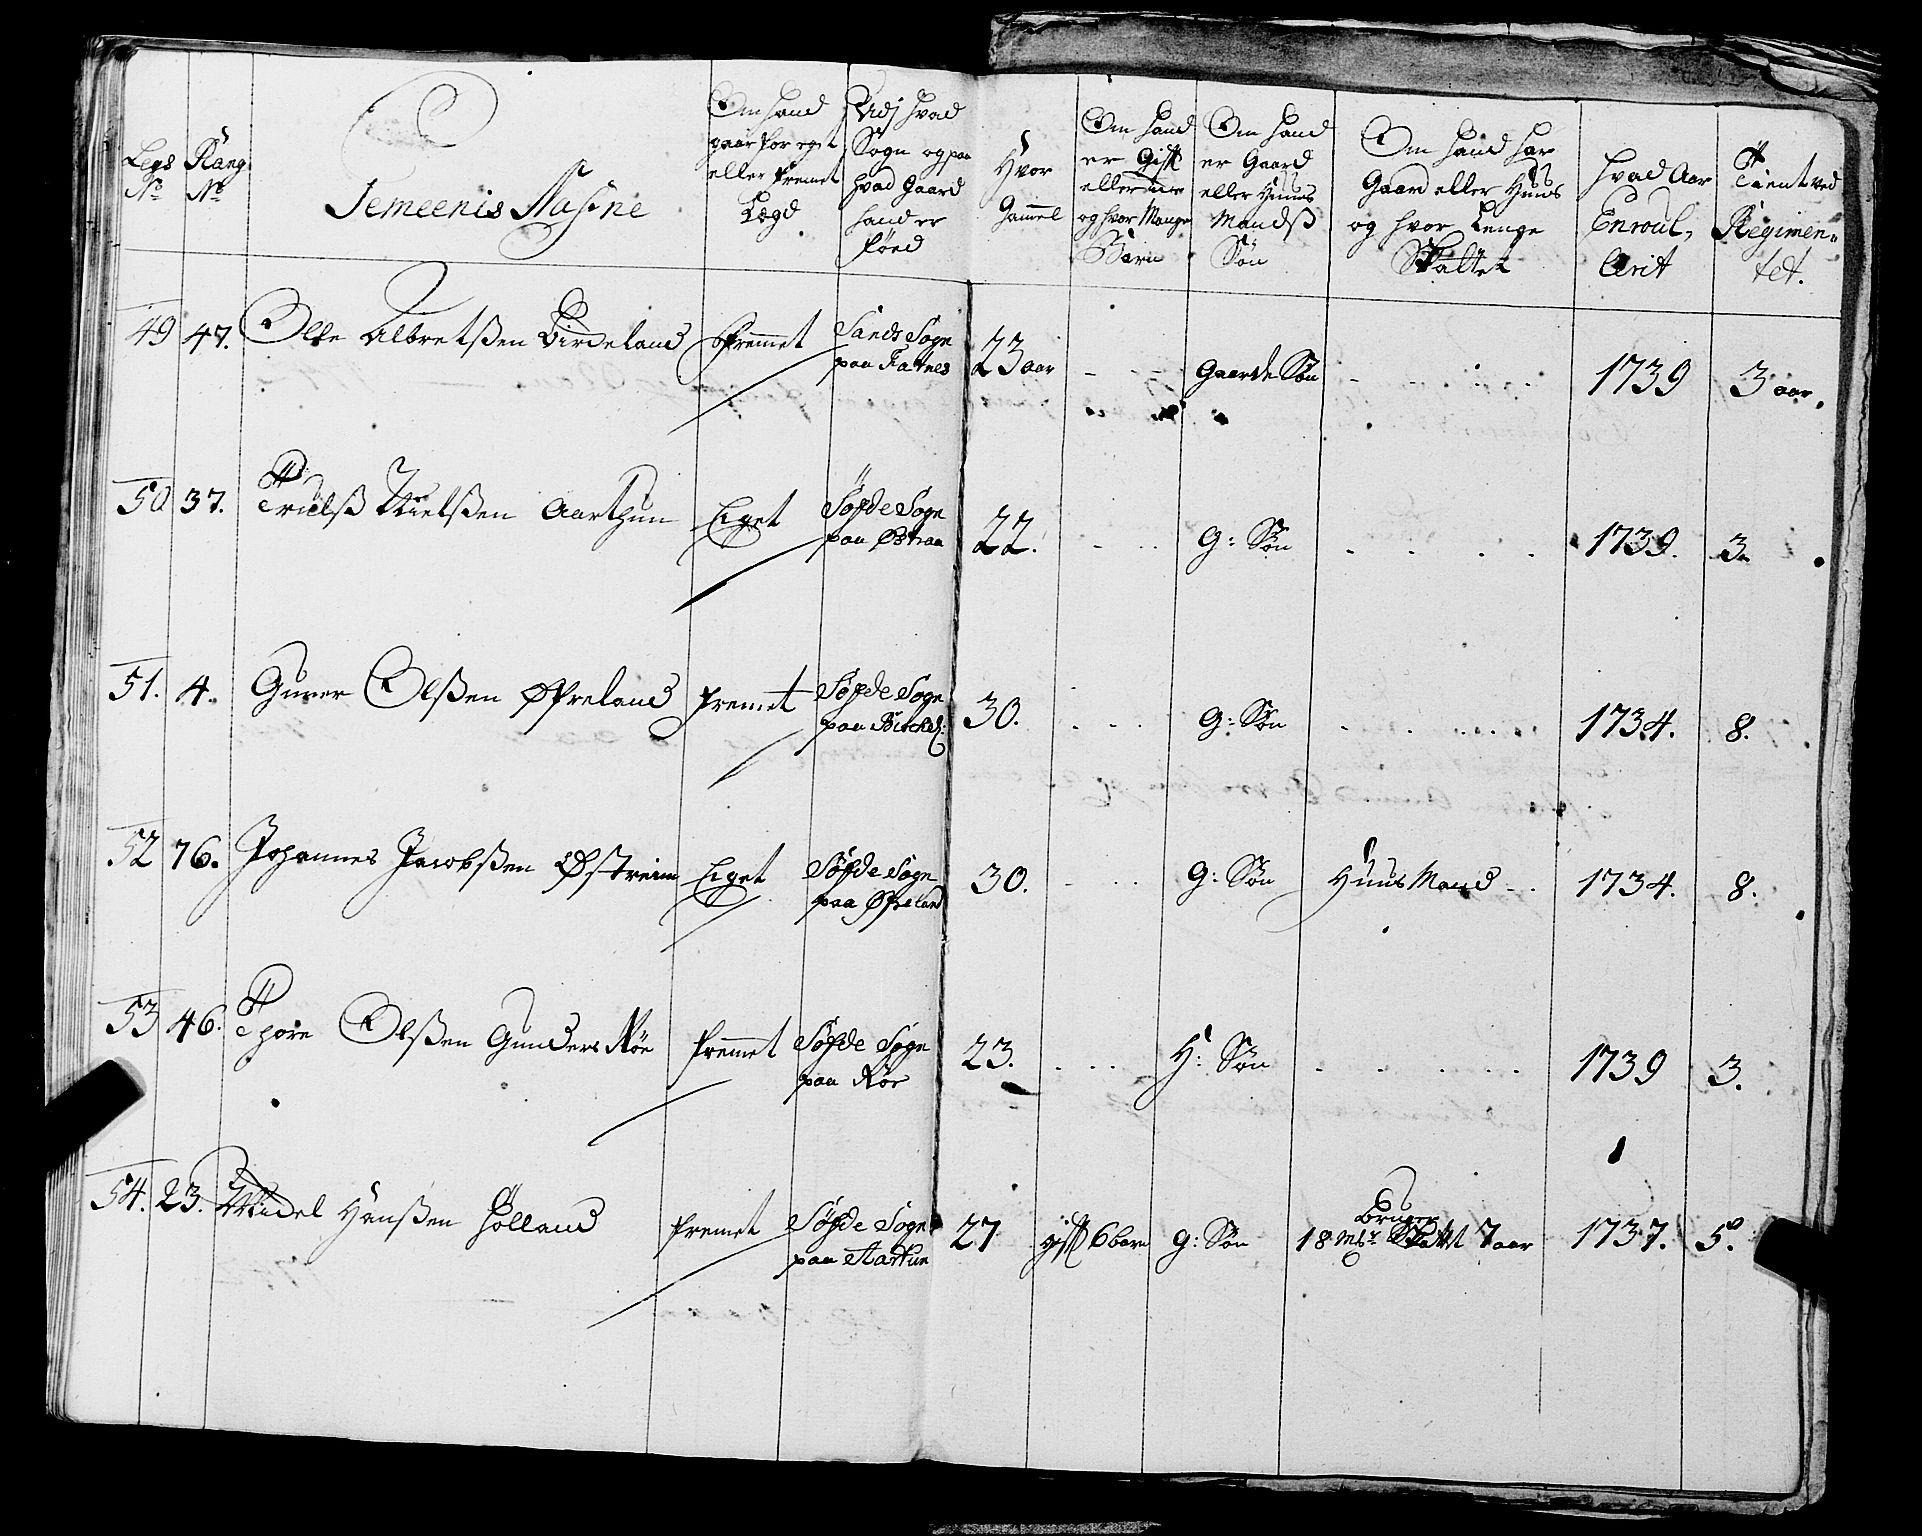 Legs No
Rang No
Jemeenis Nafne
Om hand gaar for eget eller fremet Legd
Udj hvad Sogn og paa hvad Gaard hand er föed
Hvor Gammel
Om hand er Gift eller ei og hvor Mange Børn
Om hand er Gaard eller Huus Mands Søn
Om hand har Gaard eller Huus og hvor Lenge Skattet
hvad Aar Enroul, erit
Tient ved Regimen, tet.
49 47. Olle Albretßen Birkeland fremmet Sands Sogn paa Fatnes 23 aar - - Gaarde Søn - - - - 1739 3 aar
50 37. Truls Nielßen Aarthun Eget Søfde Sogn paa Østraa 22. - - G: Søn - - - - 1739. 3.
51. 4. Guner Olßen Øfreland fremet Søfde Sogn paa 30. - - - G: Søn - - - - 1734. 8.
52 76. Johannes Jacobßen Østreim Eget Søfde Sogn paa Øfreland 30. - - - G: Søn Huus Mand - - 1734. 8.
53 46. Thore Olßen Gunders Röe fremmet Søfde Sogn paa Röe 23. - - - H: Søn - - - - 1739 3.
54. 23. Mickel Hansßen Hølland fremet Søfde Sogn paa Aartun 27 gift 6 børn G: Søn Bruger 18 Mkr Skattet 7 aar 1737. 5.